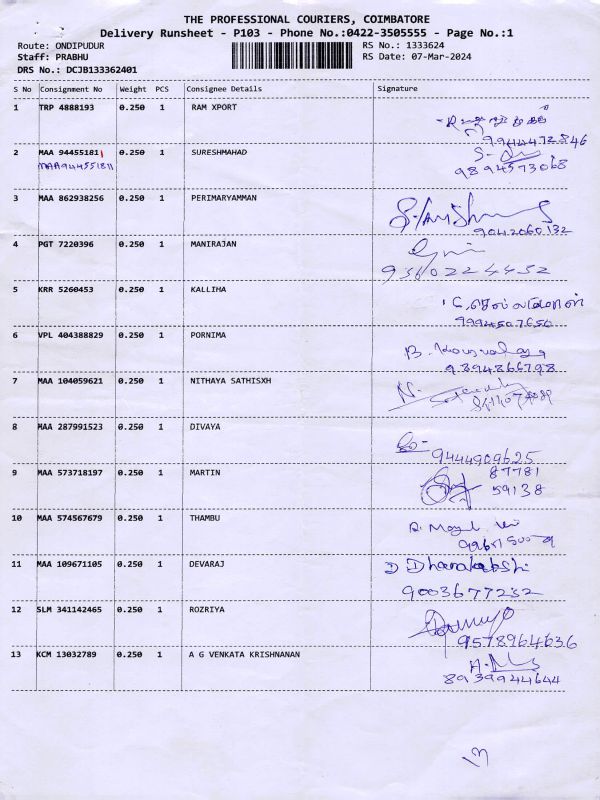 THE PROFESSIONAL COURIERS, COIMBATORE
Delivery Runsheet - P103 - Phone No.:0422-3505555 - Page No.:1
Route: ONDIPUDUR RS No.: 1333624
Staff: PRABHU RS Date: 07-Mar-2024
DRS No.: DCJB133362401
S No Consignment No Weight PCS Consignee Details Signature
1 TRP 4888193 0.250 1 RAM XPORT
9944472846
2 MAA 94455181 0.250 1 SURESHMAHAD
MAA944551811 9894573068
3 MAA 862938256 0.250 1 PERIMARYAMMAN
9042060132
4 PGT 7220396 0.250 1 MANIRAJAN
9360224452
5 KRR 5260453 0.250 1 KALLIHA
9994507656
6 VPL 404388829 0.250 1 PORNIMA B.
9894866798
7 MAA 104059621 0.250 1 NITHAYA SATHISXH N.
8 MAA 287991523 0.250 1 DIVAYA
9444909625
9 MAA 573718197 0.250 1 MARTIN 87781
59138
10 MAA 574567679 0.250 1 THAMBU
11 MAA 109671105 0.250 1 DEVARAJ D Dhanalakshi
9003677232
12 SLM 341142465 0.250 1 ROZRIYA
9578964636
13 KCM 13032789 0.250 1 A G VENKATA KRISHNANAN
8939944644